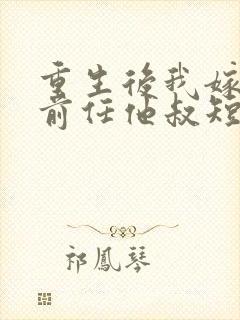 重生後我嫁
前任他叔短
祁鳳琴